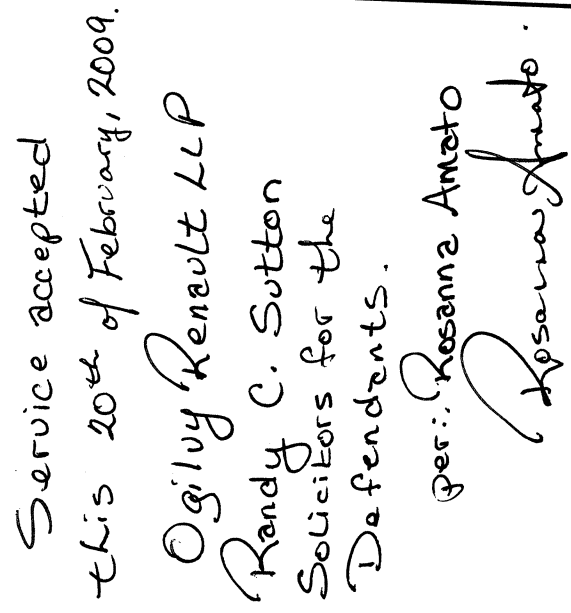 Service accepted
this 20th of February, 2009.
Ogilvy Renault LLP
Randy C. Sutton
Solicitors for the
Defendants.
per:. Rosanna Amato
Rosanna Amato.